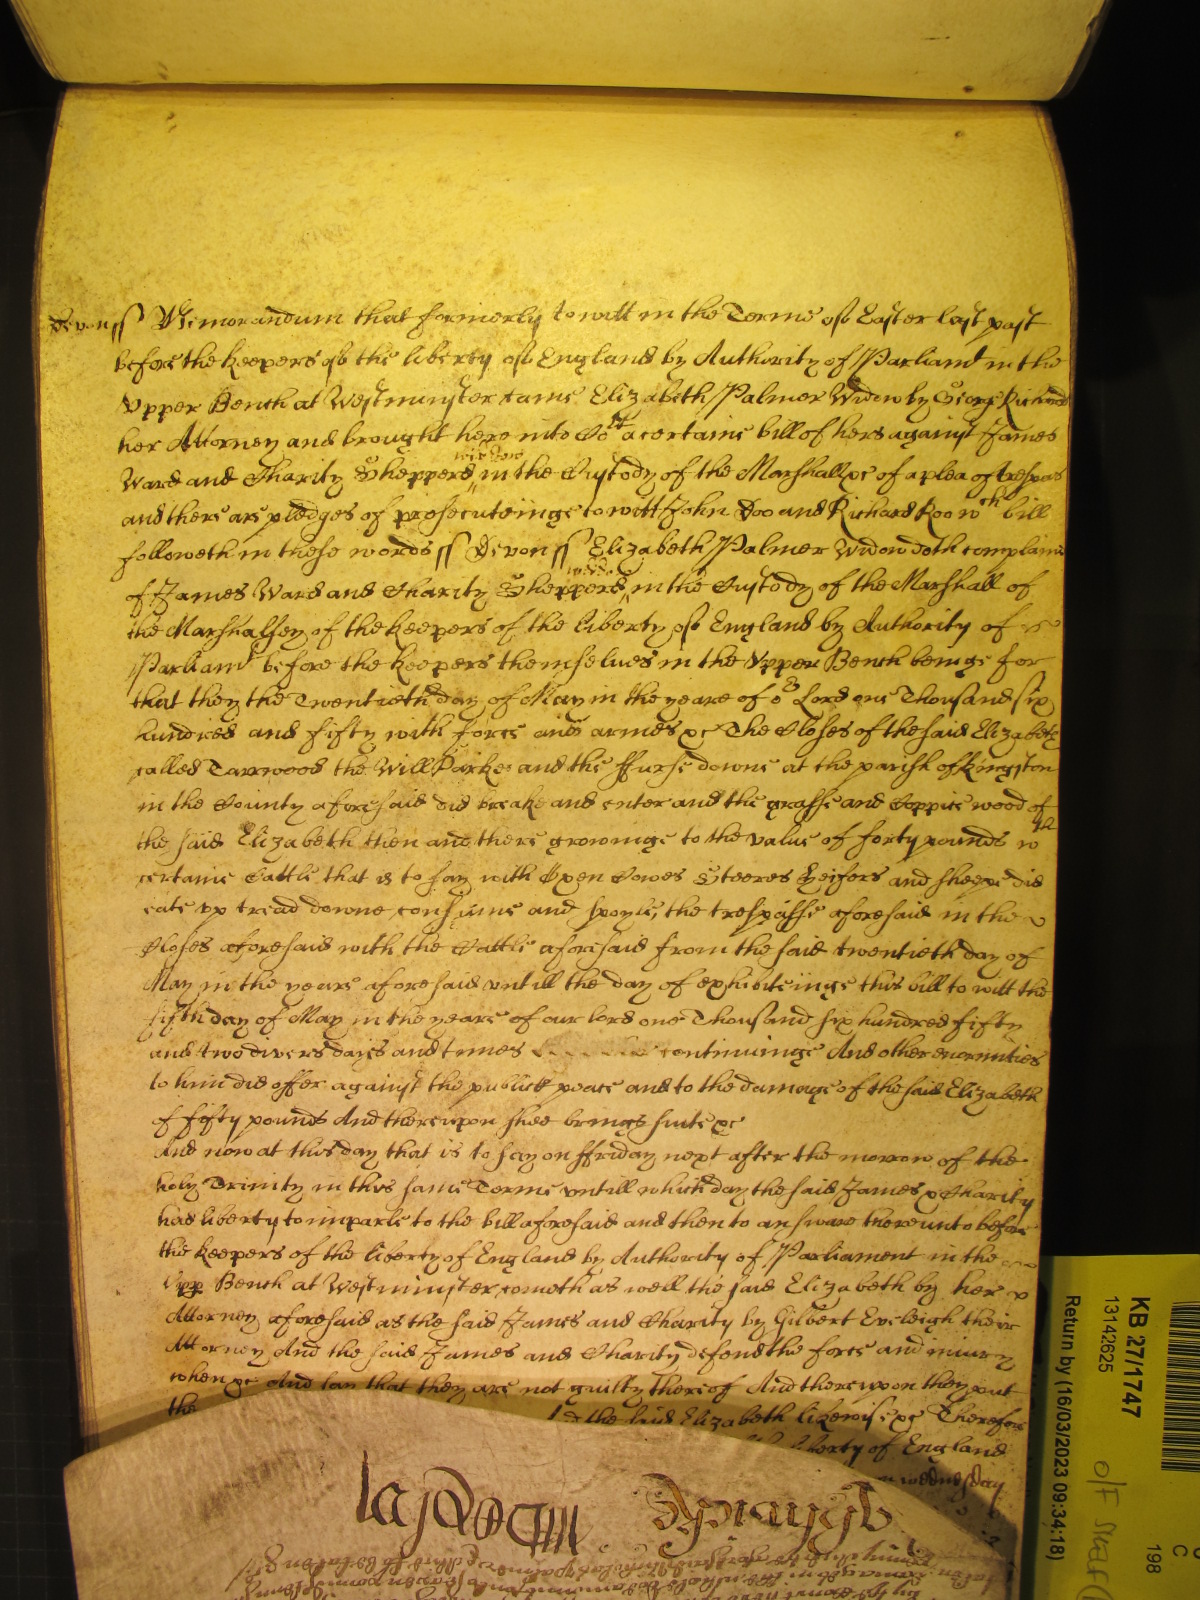 Devon ss Memorandum that formerly to witt in the Terme of Easter last past
before the keepers of the liberty of England by Authority of Parliamt in the
Vpper Bench at Westminster came Elizabeth Palmer Widow by George Richard
her Attorney and brought here into Cort a certaine bill of hers against James
Ward and Charity Shepperd widdow in the Custody of the Marshall &c of a plea of trespas
and there are pledges of prosecuteinge to witt John Doo and Richard Roo wch bill
followeth in these words ss Devon ss Elizabeth Palmer Widow doth complaine
of James Ward and Charity Shepperd widd in the Custody of the Marshall of
the Marshalsey of the keepers of the liberty of England by Authority of
Parliamt before the keepers themselues in the Vpper Bench beinge for
that they the Twentieth day of May in the yeare of or Lord one Thousand six
hundred and fifty with force and armes &c The Closes of the said Elizabeth
called Tarrwood the Will Parke and the ffurse downe at the parish of Kingston
in the County aforesaid did breake and enter and the grasse and Coppice wood of
the said Elizabeth then and there growinge to the value of forty pounds wth
certaine Cattle that is to say with Oxen Cowes Steeres Heifers and sheepe did
eate vp tread downe consume and spoyle, the trespasse aforesaid in the
Closes aforesaid with the Cattle aforesaid from the said twentieth day of
May in the yeare aforesaid vntill the day of exhibiteinge this bill to witt the
fifth day of May in the yeare of our lord one Thousand six hundred fifty
and two divers dayes and times continuinge And other enormities
to him did offer against the publick peace and to the damage of the said Elizabeth
of fifty pounds And thereupon shee brings suite &c
And now at this day that is to say on ffriday next after the morrow of the
holy Trinity in this same Terme vntill which day the said James & Charity
had liberty to imparle to the bill aforesaid and then to answare thereunto before
the keepers of the liberty of England by Authority of Parliament in the
Vpp Bench at Westminster cometh as well the said Elizabeth by her
Attorney aforesaid as the said James and Charity by Gilbert Eveleigh their
Attorney And the said James and Charity defend the force and iniury
when &c And say that they are not guilty thereof And thereupon they put
the
the said Elizabeth likewise &c Therefore
liberty of England
wednesday
KB 27/1747
13142625
Return by (16/03/2023 09:34:18)
198
C